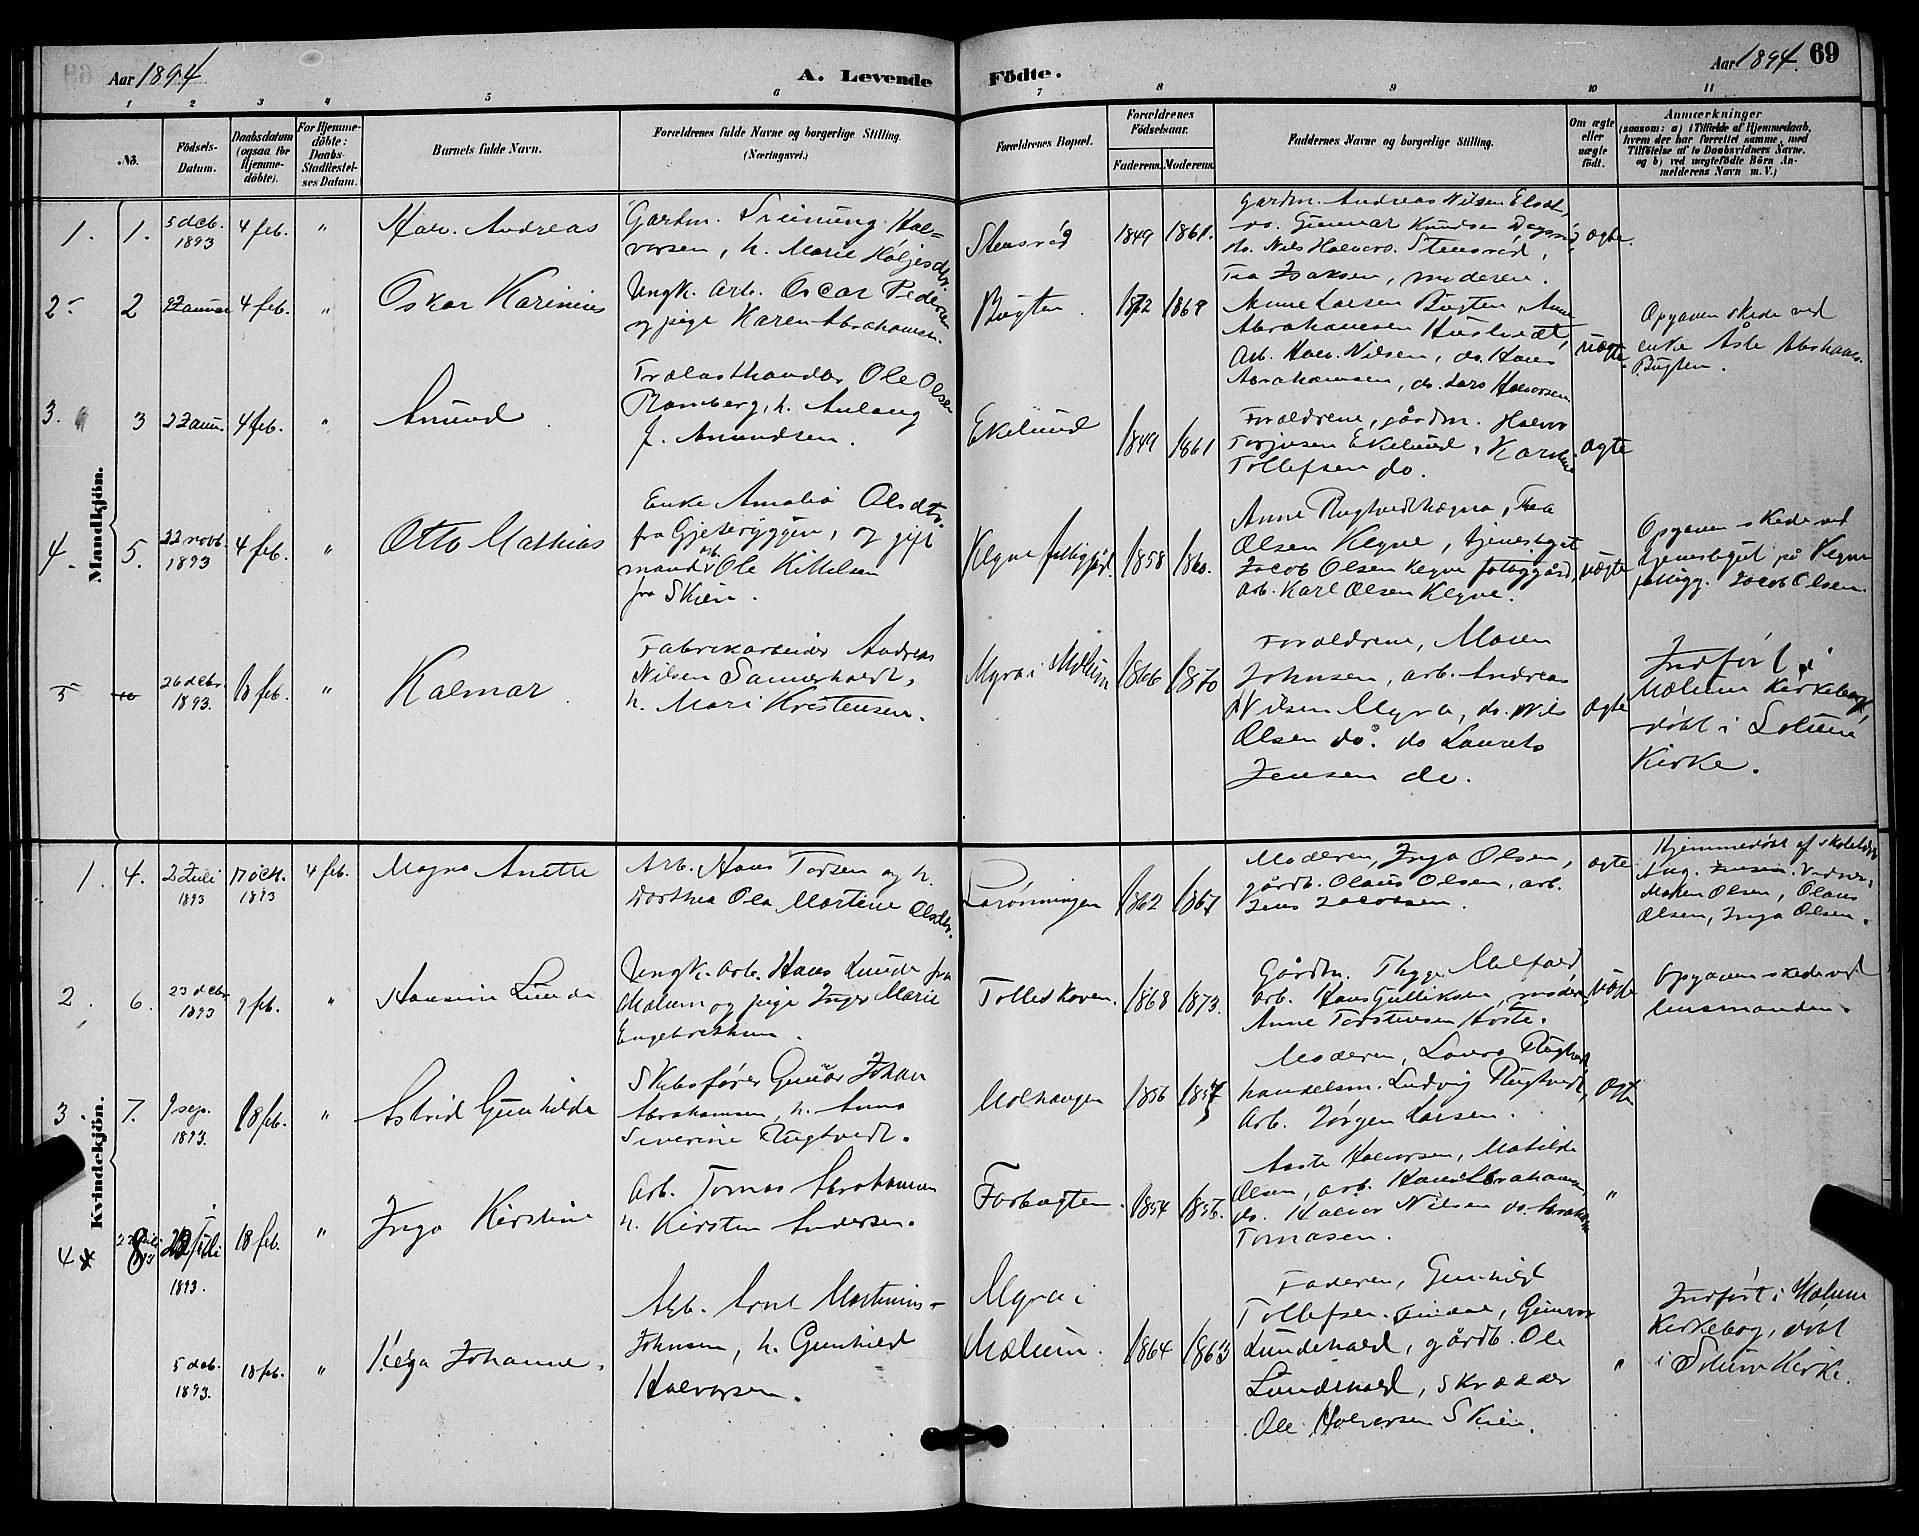 Aar 1894
A. Levende
Födte.
Aar 1894.
69
1
2
3
4
5
6
7
8
9
10
11
No.
Födsels-
Datum.
Daabsdatum
(ogsaa for
Hjemme-
döbte).
For Hjemme-
döbte:
Daabs-
Stadfæstel-
ses Datum.
Barnets fulde Navn.
Forældrenes fulde Navne og borgerlige Stilling.
(Næringsvei.)
Forældrenes Bopæl.
Forældrenes
Födselsaar.
Faderens.
Moderens.
Faddernes Navne og borgerlige Stilling.
Om ægte
eller
uægte
født.
Anmærkninger
(saasom: a) i Tilfælde af Hjemmedaab,
hvem der har forrettet samme, med
Tilföielse af to Daabsvidners Navne.
og b) ved uægtefödte Börn An-
melderens Navn m. V.)
Mandkjön.
1. 1. 5 deb. 1893 4 feb. " Halv. Andreas
Gardm. Hal=
vorsen, h. Marie
1849 1861.
Gardm. Andreas Nilsen
do. Gunnar Knudsen
do. Nils Halvors. Stensrød,
Isaksen, moderen.
ægte.
2 2 4 feb. " Oskar Karinius
Ungk. Arb. Oscar Pedersen
og pige Karen Abrahamsen.
Bugten. 1872 1869
Anne Larsen Bugten, Anne
Abrahamsen
Arb. Halv. Nilsen, do. Hans
Abrahamsen, do. Lars Halvorsen
uægte
Opgaven skede ved
enke Åste
Bugten.
3. 3 4 feb. " Amund
Trælasthandler Ole Olsen
Ramberg, h.
J. Amundsen.
Ekelund 1849 1861
Forældrene, gårdm. Halvor
Torjusen Ekelund,
Tollefsen do.
ægte
4 5. 22 novb. 1893 4 feb. " Otto Mathias
Enke Amalia Olsdtr.
fra Gjeteryggen, og gift
mand arb. Ole Kittelsen
fra Skien.
1858 1860.
Anne Thea
Olsen
Jacob Olsen
Arb. Karl Olsen
uægte
Opgaven skede ved
Jacob Olsen.
5 10 26 debr. 1893. 18 feb. " Kalmar
Fabrikarbeider Andreas
Nilsen
h. Mari Kristensen.
Myra i Mælum 1866 1870
Forældrene, Maren
Johnsen, arb. Andreas
Nilsen Myra, do. Nils
Olsen do. do Laurits
Jensen do.
ægte
Indført i
Mælum Kirkebog,
døbt i Solum
Kirke.
Kvindekjön.
1. 4. 2 Juli 1893 17 oct. 1893 4 feb. Magna Anette
Arb. Hans Torsen og h.
Dorthea Ola Martine Olsdtr.
1862
Moderen, Inga Olsen,
gårdb. Olaus Olsen, arb.
Jens Jacobsen.
ægte
Hjemmedøbt af
Maren Olsen, Olaus
Olsen, Inga Olsen.
2. 6. 23 debr 1893 9 feb. " Hansine Lunde
Ungk. Arb. Hans Lunde fra
Mælum og pige Inger Marie
Tolleskoven. 1868 1873.
Gårdm. Thygge
arb. Hans Gulliksen, moderen
Anne Torstensen
uægte
Opgaven skede ved
lensmanden.
3 7. 9 sep. 1893. 18 feb. " Astrid Gunhilde
Skibsfører Gunar Johan
Abrahamsen, h. Anna
Severine Flugtvedt.
Molhaugen 1856 1857
Moderen, Laura
handelsm. Ludvig Flugtvedt,
Arb. Jørgen Larsen.
ægte
4 8 Juli 1893. 18 feb. " Inga Kirstine
Arb. Tomas Abrahamsen
h. Kirsten Andersen.
Forbugten. 1854 1856.
Aaste Halvorsen, Matilde
Olsen, arb. Hans Abrahamsen,
do. Halvor Nilsen do. Abraham
Tomasen.
"
5 deb. 1893. 18 feb. " Helga Johanne.
Arb. Arnt Martinius
Johnsen, h. Gunhild
Halvorsen.
Myra i
Mælum. 1864 1863
Faderen, Gunhild
Tollefsen Gunvor
Lundehald, gårdb. Ole
Lundehald, Skrædder
Ole Halvorsen Skien.
"
Indført i Mælum
Kirkebog, døbt
i Solum Kirke.